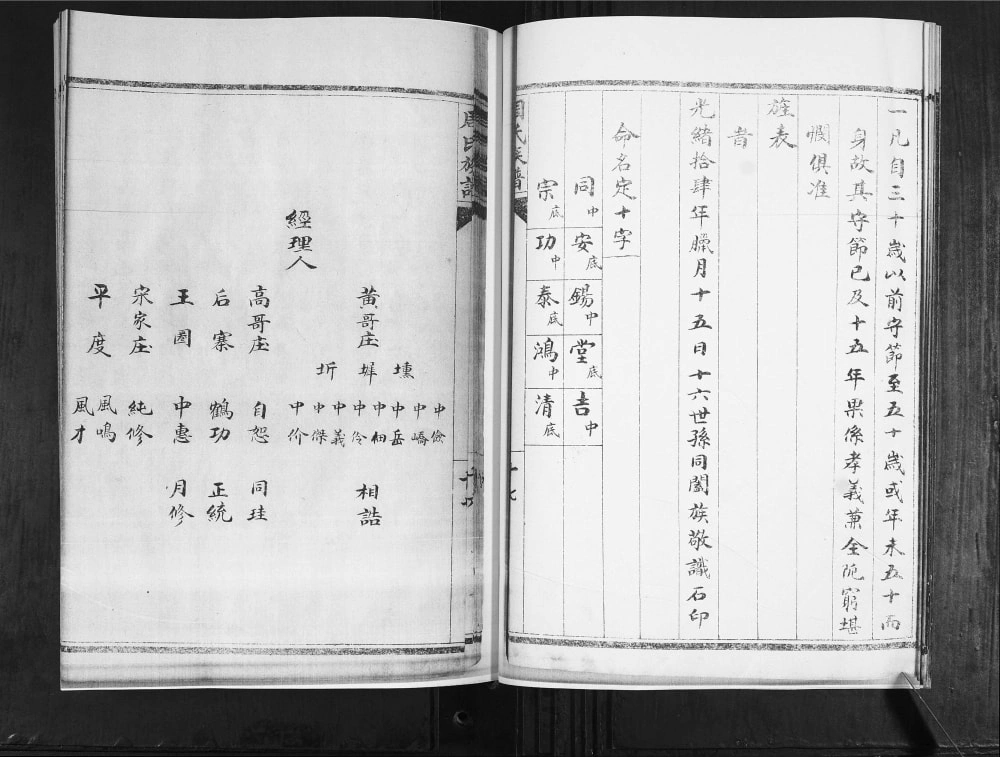 一凡自三十歲以前守節至五十歲或年未五十而
身故其守節已及十五年果係孝義兼全阨窮堪
憫俱准
旌表
者
光緒拾肆年臘月十五日十六世孫同闔族敬識石印
命名定十字
同中 安底 錫中 堂底 吉中
宗底 功中 泰底 鴻中 清底
周氏族譜
十七
周氏族譜
經理人
黃哥庄 壎 墀 圻 中儉 中嶠 中岳 中佃 中伶 中義 中傑 中价 相誥
高哥庄 自恕 同珪
后寨 鶴功 正統
王圈 中惠 月修
宋家庄 純修
平度 風鳴 風才